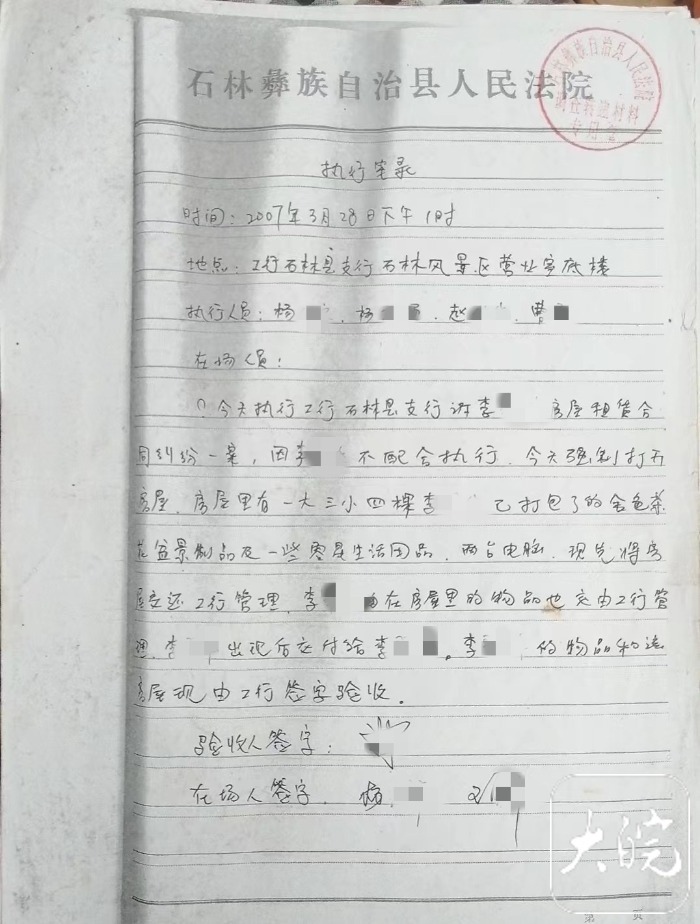 石林彝族自治县人民法院
彝族自治县人民法院
材料
专用章
执行笔录
时间：2007年3月28日下午1时
地点：工行石林县支行石林风景区营业室底楼
执行人员：杨 、杨 、赵 、曹
在场人员：
？今天执行工行石林县支行诉李 房屋租赁合
同纠纷一案，因李 不配合执行，今天强制打开
房屋，房屋里有一大三小四棵李 已打包了的金色茶
花盆景制品及一些零星生活用品，两台电脑，现先将房
屋交还工行管理，李 在房屋里的物品也交由工行管
理，李 出现后交付给李 ，李 的物品和该
房屋现由工行签字验收。
验收人签字：
在场人签字． 杨
大皖
第 页